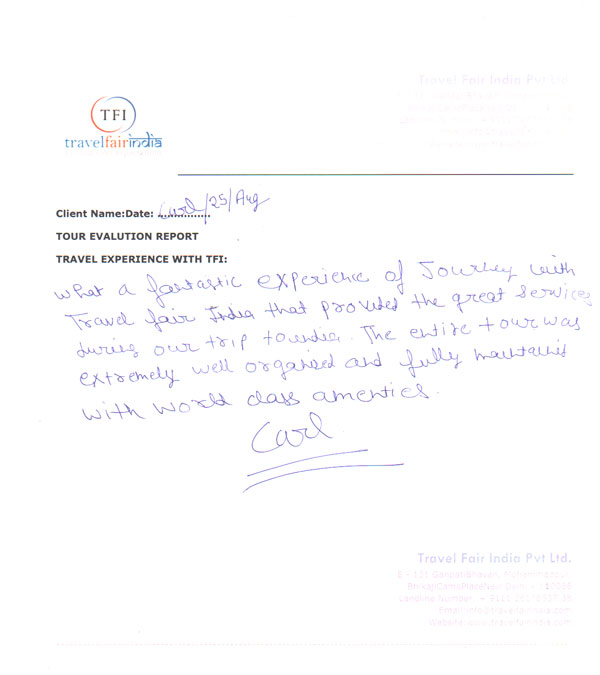 Travel Fair India Pvt Ltd.
TFI
travelfairindia
Client Name:Date: Carl/25/Aug
TOUR EVALUTION REPORT
TRAVEL EXPERIENCE WITH TFI:
What a fantastic experience of Journey with
Travel fair India that provided the great services
during our trip to india. The entire tour was
extremely well organised and fully maintained
with world class amenties.
Carl
Travel Fair India Pvt Ltd.
Landline Number:
Email: info@travelfairindia.com
Website: www.travelfairindia.com